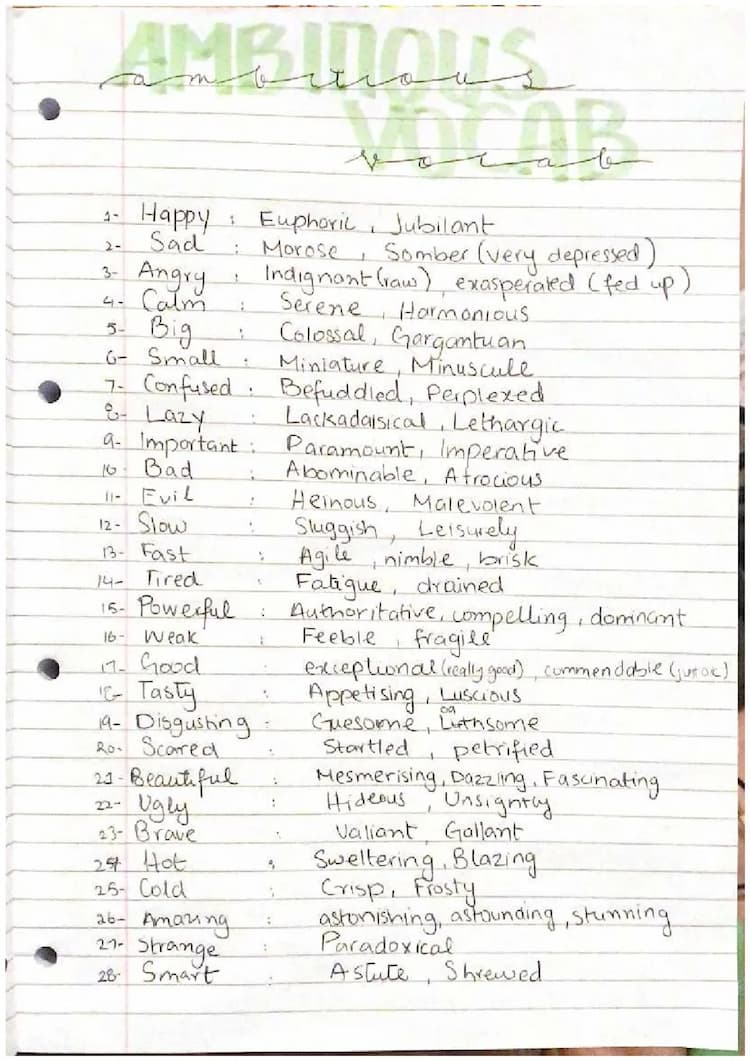 AMBITIOUS
ambitious
VOCAB
vocab
1- Happy : Euphoric, Jubilant
2- Sad : Morose, Somber (very depressed)
3- Angry : Indignant (raw), exasperated (fed up)
4- Calm : Serene, Harmonious
5- Big : Colossal, Gargantuan
6- Small : Miniature, Minuscule
7- Confused : Befuddled, Perplexed
8- Lazy : Lackadaisical, Lethargic
9- Important : Paramount, Imperative
10- Bad : Abominable, Atrocious
11- Evil : Heinous, Malevolent
12- Slow : Sluggish, Leisurely
13- Fast : Agile, nimble, brisk
14- Tired : Fatigue, drained
15- Powerful : Authoritative, compelling, dominant
16- Weak : Feeble, fragile
17- Good : exceptional (really good), commendable
18- Tasty : Appetising, Luscious
19- Disgusting : Gruesome, Loathsome
20- Scared : Startled, petrified
21- Beautiful : Mesmerising, Dazzling, Fascinating
22- Ugly : Hideous,
23- Brave : Valiant, Gallant
24- Hot : Sweltering, Blazing
25- Cold : Crisp, Frosty
26- Amazing : astonishing, astounding, stunning
27- Strange : Paradoxical
28- Smart : Astute, Shrewed